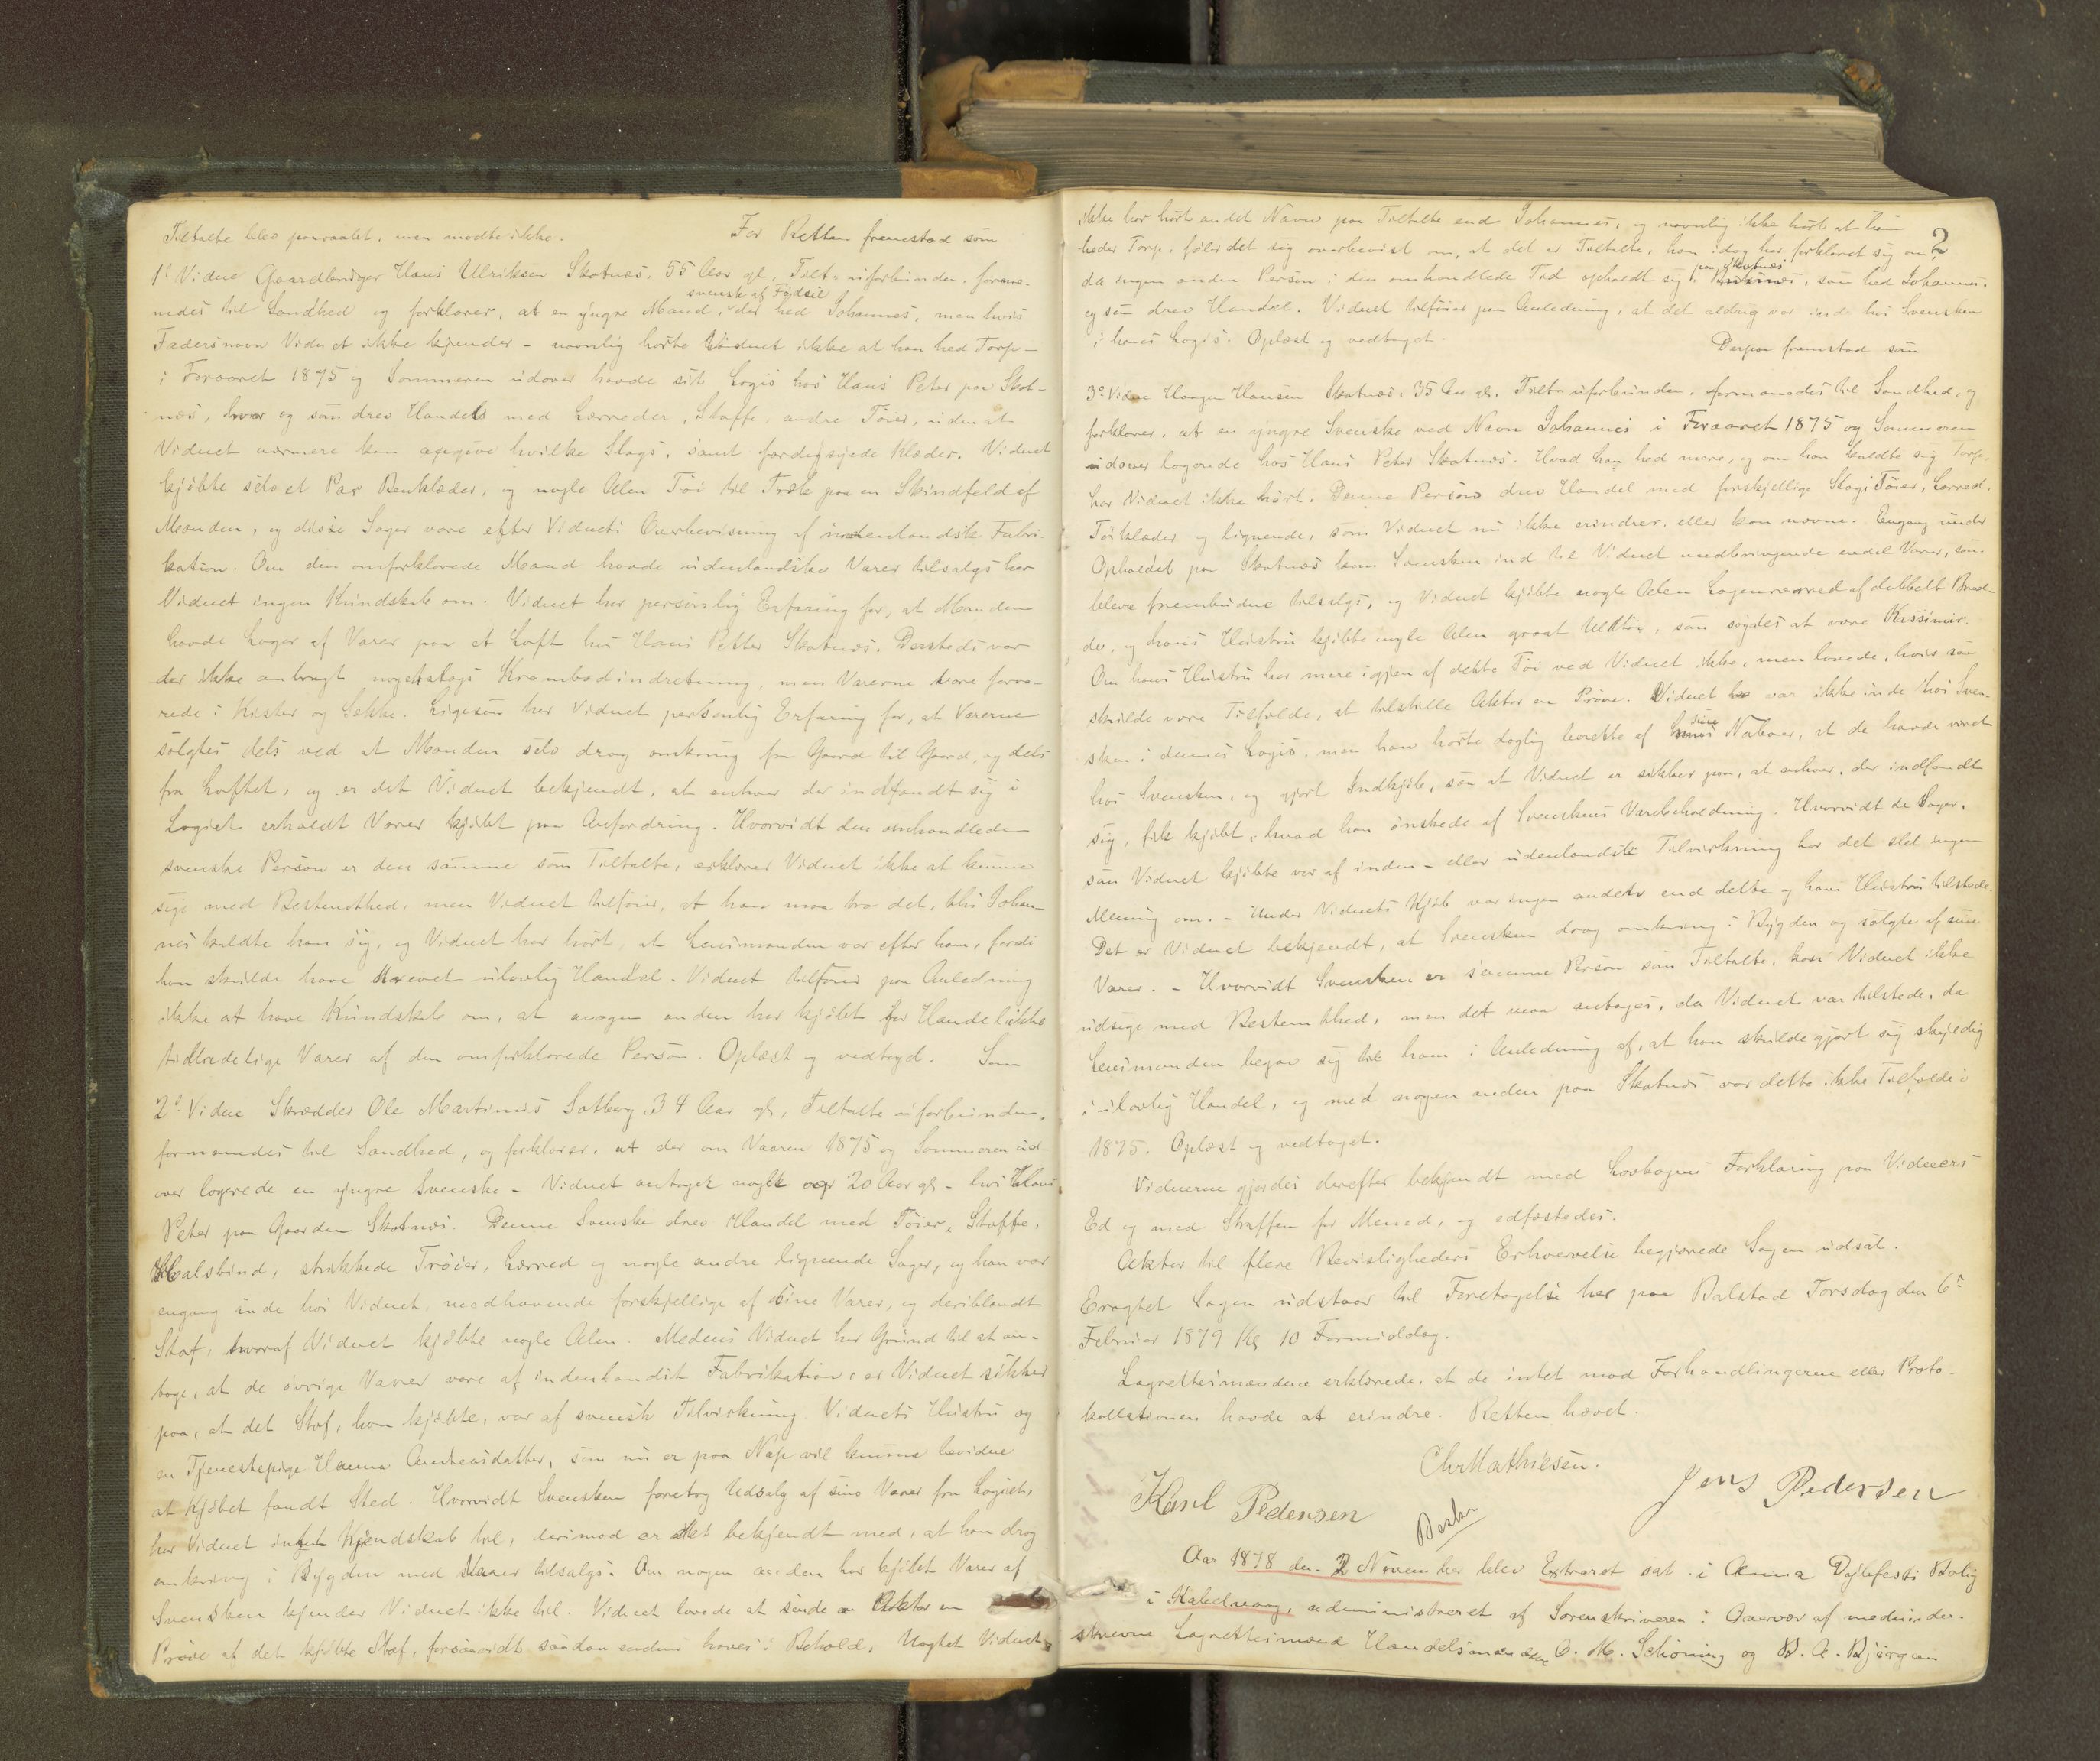 Tiltalte blev paaraabt, men mødte ikke. For Retten fremstod som
1ste Vidne Gaardbruger Hans Ulriksen Skotnæs, 55 Aar gl, Tilt. uforbunden, forma-
nedes til Sandhed og forklarer, at en yngre Mand, svensk af Fødsel der hed Johannes, men hvis
Fadersnavn Vidnet ikke kjender - navnlig hørte Vidnet ikke at han hed Torp -
i Foraaret 1875 og Sommeren udover havde sit Logis hos Hans Peter paa Skot-
næs, hvor og som drev Handel med Lærreder, Stoffe, andre Tøier, uden at
Vidnet nærmere kan opgive hvilke Slags, samt færdigsyede Klæder. Vidnet
kjøbte selv et Par Benklæder, og nogle Alen Tøi til Træk paa en Skindfeld af
Manden, og disse Sager vare efter Vidnets Overbevisning af indenlandsk Fabri-
kation. Om den omforklarede Mand havde udenlandske Varer tilsalgs har
Vidnet ingen Kundskab om. Vidnet har personlig Erfaring for, at Manden
havde Lager af Varer paa et Loft hos Hans Petter Skotnæs. Dersteds var
der ikke anbragt nogenslags Krambodindretning, men Varerne vare forva-
rede i Kister og Sække. Ligesom har Vidnet personlig Erfaring for, at Varerne
solgtes dels ved at Manden selv drog omkring fra Gaard til Gaard, og dels
fra Loftet, og er det Vidnet bekjendt, at enhver der indfandt sig i
Logiet erholdt Varer kjøbt paa Anfordring. Hvorvidt den omhandlede
svenske Person er den samme som Tiltalte, erklærer Vidnet ikke at kunne
sige med Bestemthed, men Vidnet tilføier, at han maa tro det, thi Johan-
nes kaldte han sig, og Vidnet har hørt, at Lensmanden var efter ham, fordi
han skulde have drevet ulovlig Handel. Vidnet tilføier paa Anledning
ikke at have Kundskab om, at nogen anden har kjøbt for Handel ikke
tilladelige Varer af den omforklarede Person. Oplæst og vedtaget. Som
2det Vidne Skrædder Ole Martinus Solberg, 34 Aar gl, Tiltalte uforbunden,
formanedes til Sandhed, og forklarer, at der om Vaaren 1875 og Sommeren ud-
over logerede en yngre Svenske - Vidnet antager nogle og 20 Aar gl - hos Hans
Peter paa Gaarden Skotnæs. Denne Svenske drev Handel med Tøier, Stoffe,
Halsbind, strikkede Trøier, Lærred og nogle andre lignende Sager, og han var
engang inde hos Vidnet, medhavende forskjellige af sine Varer, og deriblandt
Stof, hvoraf Vidnet kjøbte nogle Alen. Medens Vidnet har Grund til at an-
tage, at de øvrige Varer vare af indenlandsk Fabrikation, er Vidnet sikker
paa, at det Stof, han kjøbte, var af svensk Tilvirkning. Vidnets Hustru og
en Tjenestepige Hanna Andreasdatter, som nu er paa Nap vil kunne bevidne
at Kjøbet fandt Sted. Hvorvidt Svensken foretog Udsalg af sine Varer fra Logiet,
har Vidnet intet Kjendskab til, derimod er det bekjendt med, at han drog
omkring i Bygden med Varer tilsalgs. Om nogen anden har kjøbt Varer af
Svensken kjender Vidnet ikke til. Vidnet lovede at sende Aktor en
Prøve af det kjøbte Stof, forsaavidt saadan endnu haves i Behold. Uagtet Vidnet
2
ikke har hørt andet Navn paa Tiltalte end Johannes, og navnlig ikke hørt at han
heder Torp, føler det sig overbevist om, at det er Tiltalte, han idag har forklaret sig om,
da ingen anden Person i den omhandlede Tid opholdt sig paa Skotnæs, som hed Johannes,
og som drev Handel. Vidnet tilføier paa Anledning, at det aldrig var inde hos Svensken
i hans Logis. Oplæst og vedtaget. Derpaa fremstod som
3die Vidne Haagen Hansen Skotnæs, 35 Aar gl, Tilt. uforbunden, formanedes til Sandhed, og
forklarer, at en yngre Svenske ved Navn Johannes i Foraaret 1875 og Sommeren
udover logerede hos Hans Peter Skotnæs. Hvad han hed mere, og om han kaldte sig Torp,
har Vidnet ikke hørt. Denne Person drev Handel med forskjellige Slags Tøier, Lærred,
Tørklæder og lignende, som Vidnet nu ikke erindrer eller kan nævne. Engang under
Opholdet paa Skotnæs kom Svensken ind til Vidnet medbringende endel Varer, som
bleve frembudne tilsalgs, og Vidnet kjøbte nogle Alen Lagenlærred af dobbelt Bred-
de, og hans Hustru kjøbte nogle Alen graat Uldtøi, som sagdes at være Kassimir.
Om hans Hustru har mere igjen af dette Tøi ved Vidnet ikke, men lovede, hvis saa
skulde være Tilfælde, at tilstille Aktor en Prøve. Vidnet var ikke inde hos Sven-
sken i dennes Logis, men han hørte daglig berette af sine Naboer, at de havde været
hos Svensken, og gjort Indkjøb, saa at Vidnet er sikker paa, at enhver, der indfandt
sig, fik kjøbt, hvad han ønskede af Svenskens Varebeholdning. Hvorvidt de Sager,
som Vidnet kjøbte var af inden- eller udenlandsk Tilvirkning har det slet ingen
Mening om. - Under Vidnets Kjøb var ingen anden end dette og hans Hustru tilstede.
Det er Vidnet bekjendt, at Svensken drog omkring i Bygden og solgte af sine
Varer. - Hvorvidt Svensken er samme Person som Tiltalte, kan Vidnet ikke
udsige med Bestemthed, men det maa antages, da Vidnet var tilstede, da
Lensmanden begav sig til ham i Anledning af, at han skulde gjort sig skyldig
i ulovlig Handel, og med nogen anden paa Skotnæs var dette ikke Tilfælde i
1875. Oplæst og vedtaget.
Vidnerne gjordes derefter bekjendt med Lovbogens Forklaring paa Vidners
Ed og med Straffen for Mened, og edfæstedes.
Aktor til flere Bevisligheders Erhvervelse begjærede Sagen udsat.
Eragtet Sagen udstaar til Foretagelse her paa Balstad Torsdag den 6te
Februar 1879 Kl 10 Formiddag.
Lagrettesmændene erklærede, at de intet mod Forhandlingerne eller Proto-
kollationen havde at erindre. Retten hævet.
Chr Mathiesen.
Karl Pedersen Jens Pedersen
Aar 1878 den 2 November blev Extraret sat i Anna Dybfests Bolig
i Kabelvaag, administreret af Sorenskriveren i Overvær af medunder-
skrevne Lagrettesmænd Handelsmændene O. M. Schøning og B. A. Bjørgan